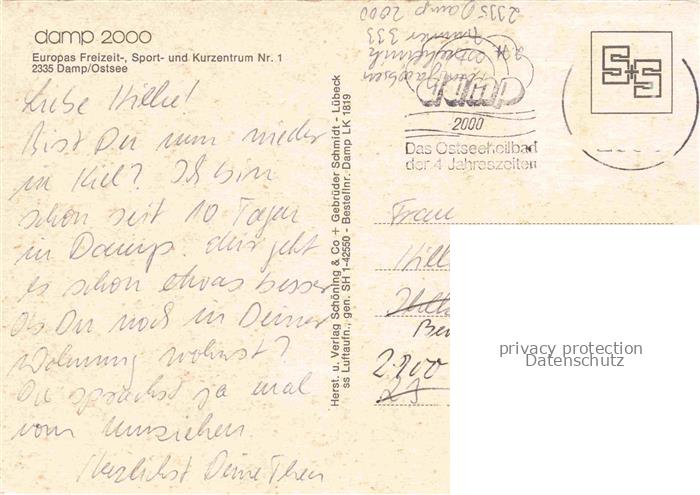 damp 2000
Europas Freizeit-, Sport- und Kurzentrum Nr. 1
2335 Damp/Ostsee
Liebe Hilke!
Bist Du nun wieder
in Kiel? Ich bin
schon seit 10 Tagen
in Damp. geht
es schon etwas besser
Ob Du noch in Deiner
Wohnung wohnst?
Du sprachst ja mal
vom Umziehen.
Herzlichst Deine
Herst. u. Verlag Schöning & Co + Gebrüder Schmidt - Lübeck
ss Luftaufn., gen. SH 1-42550 - Bestellnr. Damp LK 1819
Zimmer 333
2335 Damp 2000
damp
2000
Das Ostseeheilbad
der 4 Jahreszeiten
S+S
Frau
2300
23
privacy protection
Datenschutz